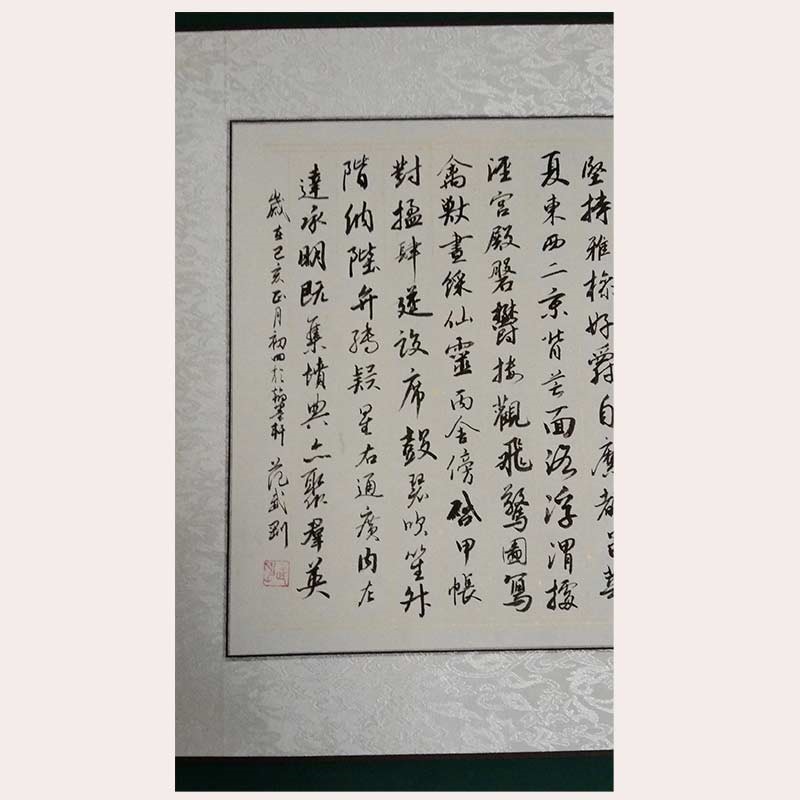 堅持雅操好爵自縻都邑華
夏東西二京背芒面洛浮渭據
涇宮殿磐鬱樓觀飛驚圖寫
禽獸畫綵仙靈丙舍傍啟甲帳
對楹肆筵設席鼓瑟吹笙升
階納陛弁轉疑星右通廣內左
達承明既集墳典亦聚羣英
歲在己亥正月初四於翰墨軒 范武剛